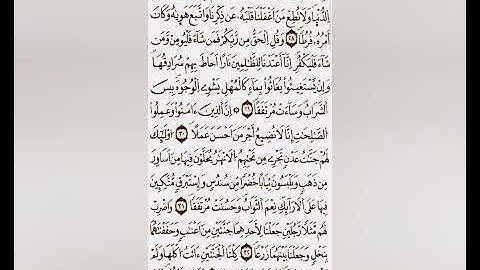 الدُّنْيَا وَلَا تُطِعْ مَنَ اَغْفَلْنَا قَلْبَهُۥ عَن ذِكْرِنَا وَاتَّبَعَ هَوٜىٰهُ وَكَانَ
أَمْرُهُۥ فُرُطًا ٢٨ وَقُلِ الْحَقُّ مِن رَّبِّكُمْ فَمَن شَآءَ فَلْيُومِن وَّمَن
شَآءَ فَلْيَكْفُرِ اِنَّآ أَعْتَدْنَا لِلظَّٰلِمِينَ نَارًا اَحَاطَ بِهِمْ سُرَادِقُهَا
وَإِنْ يَّسْتَغِيثُوا۟ يُغَاثُوا۟ بِمَآءٍ كَالْمُهْلِ يَشْوِے الْوُجُوهَ بِيسَ
الشَّرَابُ وَسَآءَتْ مُرْتَفَقًا ٢٩ اِنَّ الذِينَ ءَامَنُوا۟ وَعَمِلُوا۟
الصَّٰلِحَٰتِ إِنَّا لَا نُضِيعُ أَجْرَ مَنَ اَحْسَنَ عَمَلًا ٣٠ اُو۟لَٰٓئِكَ
لَهُمْ جَنَّٰتُ عَدْنٍ تَجْرِے مِن تَحْتِهِمُ الَانْهَٰرُ يُحَلَّوْنَ فِيهَا مِنَ اَسَاوِرَ
مِن ذَهَبٍ وَيَلْبَسُونَ ثِيَابًا خُضْرًا مِّن سُندُسٍ وَإِسْتَبْرَقٍ مُّتَّكِـِٕينَ
فِيهَا عَلَى الَارَآئِكِ نِعْمَ الثَّوَابُ وَحَسُنَتْ مُرْتَفَقًا ٣١ وَاضْرِبْ
لَهُم مَّثَلًا رَّجُلَيْنِ جَعَلْنَا لِأَحَدِهِمَا جَنَّتَيْنِ مِنَ اَعْنَٰبٍ وَحَفَفْنَٰهُمَا
بِنَخْلٍ وَجَعَلْنَا بَيْنَهُمَا زَرْعًا ٣٢ كِلْتَا الْجَنَّتَيْنِ ءَاتَتُ اُكْلَهَا وَلَمْ